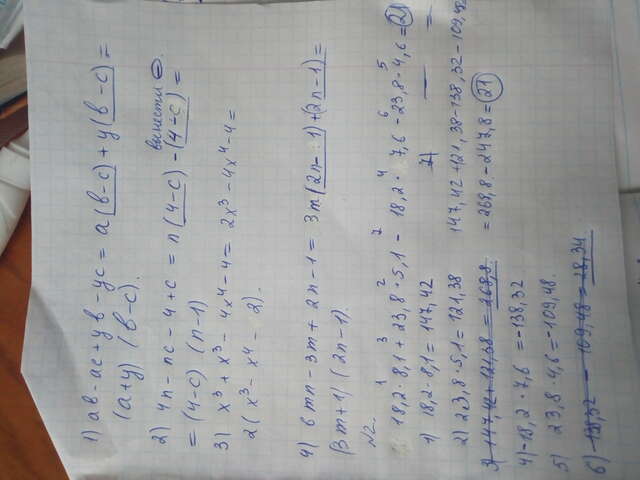 1) ав - ас + ув - ус = а(в-с) + у(в-с) =
(а+у) (в-с).
2) 4n - nc - 4 + c = n(4-c) - (4-c) =
вынести
= (4-c) (n-1)
3) x³ + x³ - 4x⁴ - 4 = 2x³ - 4x⁴ - 4 =
2(x³ - x⁴ - 2).
4) 6mn - 3m + 2n - 1 = 3m(2n-1) + (2n-1) =
(3m+1) (2n-1).
№2.
18,2 · 8,1 + 23,8 · 5,1 - 18,2 · 7,6 - 23,8 · 4,6 = 21
1) 18,2 · 8,1 = 147,42
2) 23,8 · 5,1 = 121,38
3) 147,42 + 121,38 = 268,8
4) -18,2 · 7,6 = -138,32
5) 23,8 · 4,6 = -109,48.
6) -138,32 - 109,48 = 18,34
7)
147,42 + 121,38 - 138,32 - 109,48
= 268,8 - 247,8 = 21